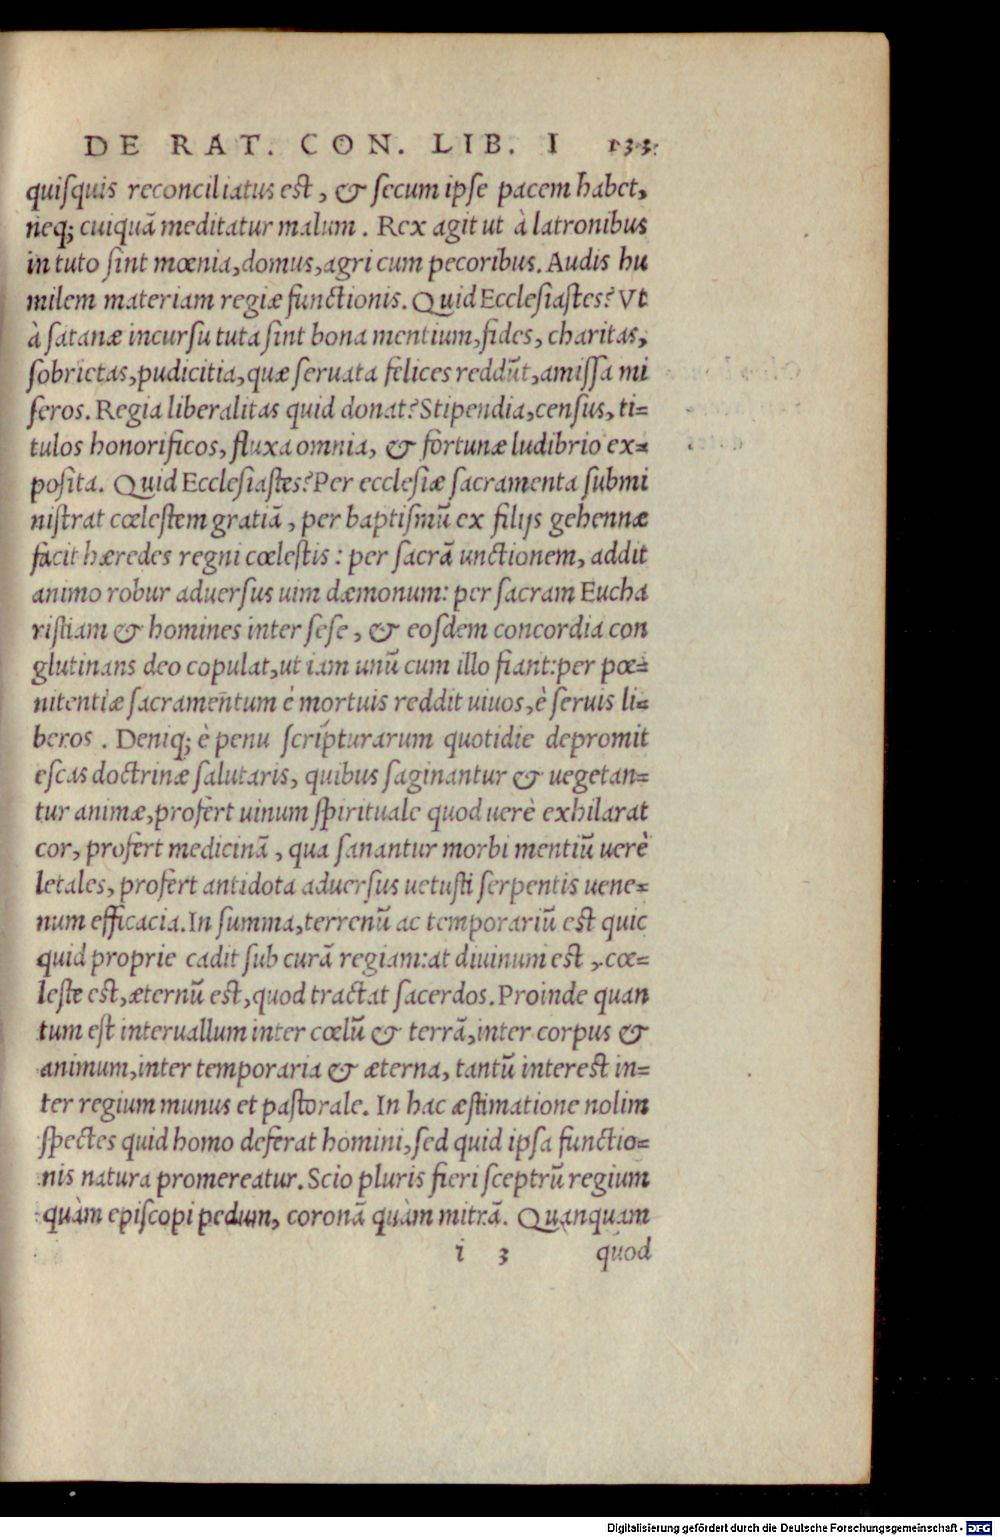 DE RAT. CON. LIB. I 133
quiſquis reconciliatus est, & ſecum ipſe pacem habet,
neq; cuiquã meditatur malum. Rex agit ut à latronibus
in tuto ſint mœnia, domus, agri cum pecoribus. Audis hu
milem materiam regiæ functionis. Quid Eccleſiaſtes? Vt
à ſatanæ incurſu tuta ſint bona mentium, fides, charitas,
ſobrietas, pudicitia, quæ ſeruata felices reddũt, amiſſa mi
ſeros. Regia liberalitas quid donat? Stipendia, cenſus, ti=
tulos honorificos, fluxa omnia, & fortunæ ludibrio ex=
poſita. Quid Eccleſiaſtes? Per eccleſiæ ſacramenta ſubmi
niſtrat cœleſtem gratiã, per baptiſmũ ex filijs gehennæ
facit hæredes regni cœleſtis: per ſacrã unctionem, addit
animo robur aduerſus uim dæmonum: per ſacram Eucha
riſtiam & homines inter ſeſe, & eoſdem concordia con
glutinans deo copulat, ut iam unũ cum illo fiant: per pœ=
nitentiæ ſacramentum è mortuis reddit uiuos, è ſeruis li=
beros. Deniq; è penu ſcripturarum quotidie depromit
eſcas doctrinæ ſalutaris, quibus ſaginantur & uegetan=
tur animæ, profert uinum ſpirituale quod uerè exhilarat
cor, profert medicinã, qua ſanantur morbi mentiũ uerè
letales, profert antidota aduerſus uetuſti ſerpentis uene=
num efficacia. In ſumma, terrenũ ac temporariũ est quic
quid proprie cadit ſub curã regiam: at diuinum est, cœ=
leſte est, æternũ est, quod tractat ſacerdos. Proinde quan
tum eſt interuallum inter cœlũ & terrã, inter corpus &
animum, inter temporaria & æterna, tantũ interest in=
ter regium munus et paſtorale. In hac æſtimatione nolim
ſpectes quid homo deferat homini, ſed quid ipſa functio=
nis natura promereatur. Scio pluris fieri ſceptrũ regium
quàm epiſcopi pedum, coronã quàm mitrã. Quanquam
i 3 quod
Digitalisierung gefördert durch die Deutsche Forschungsgemeinschaft - DFG